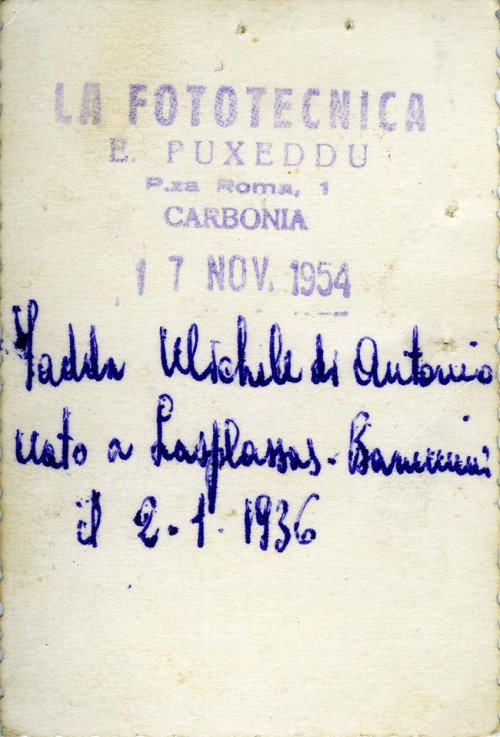 LA FOTOTECNICA
E. PUXEDDU
P.za Roma, 1
CARBONIA
17 NOV. 1954
Michele di Antonio
nato a Lasplassas - Barumini
il 2-1-1936